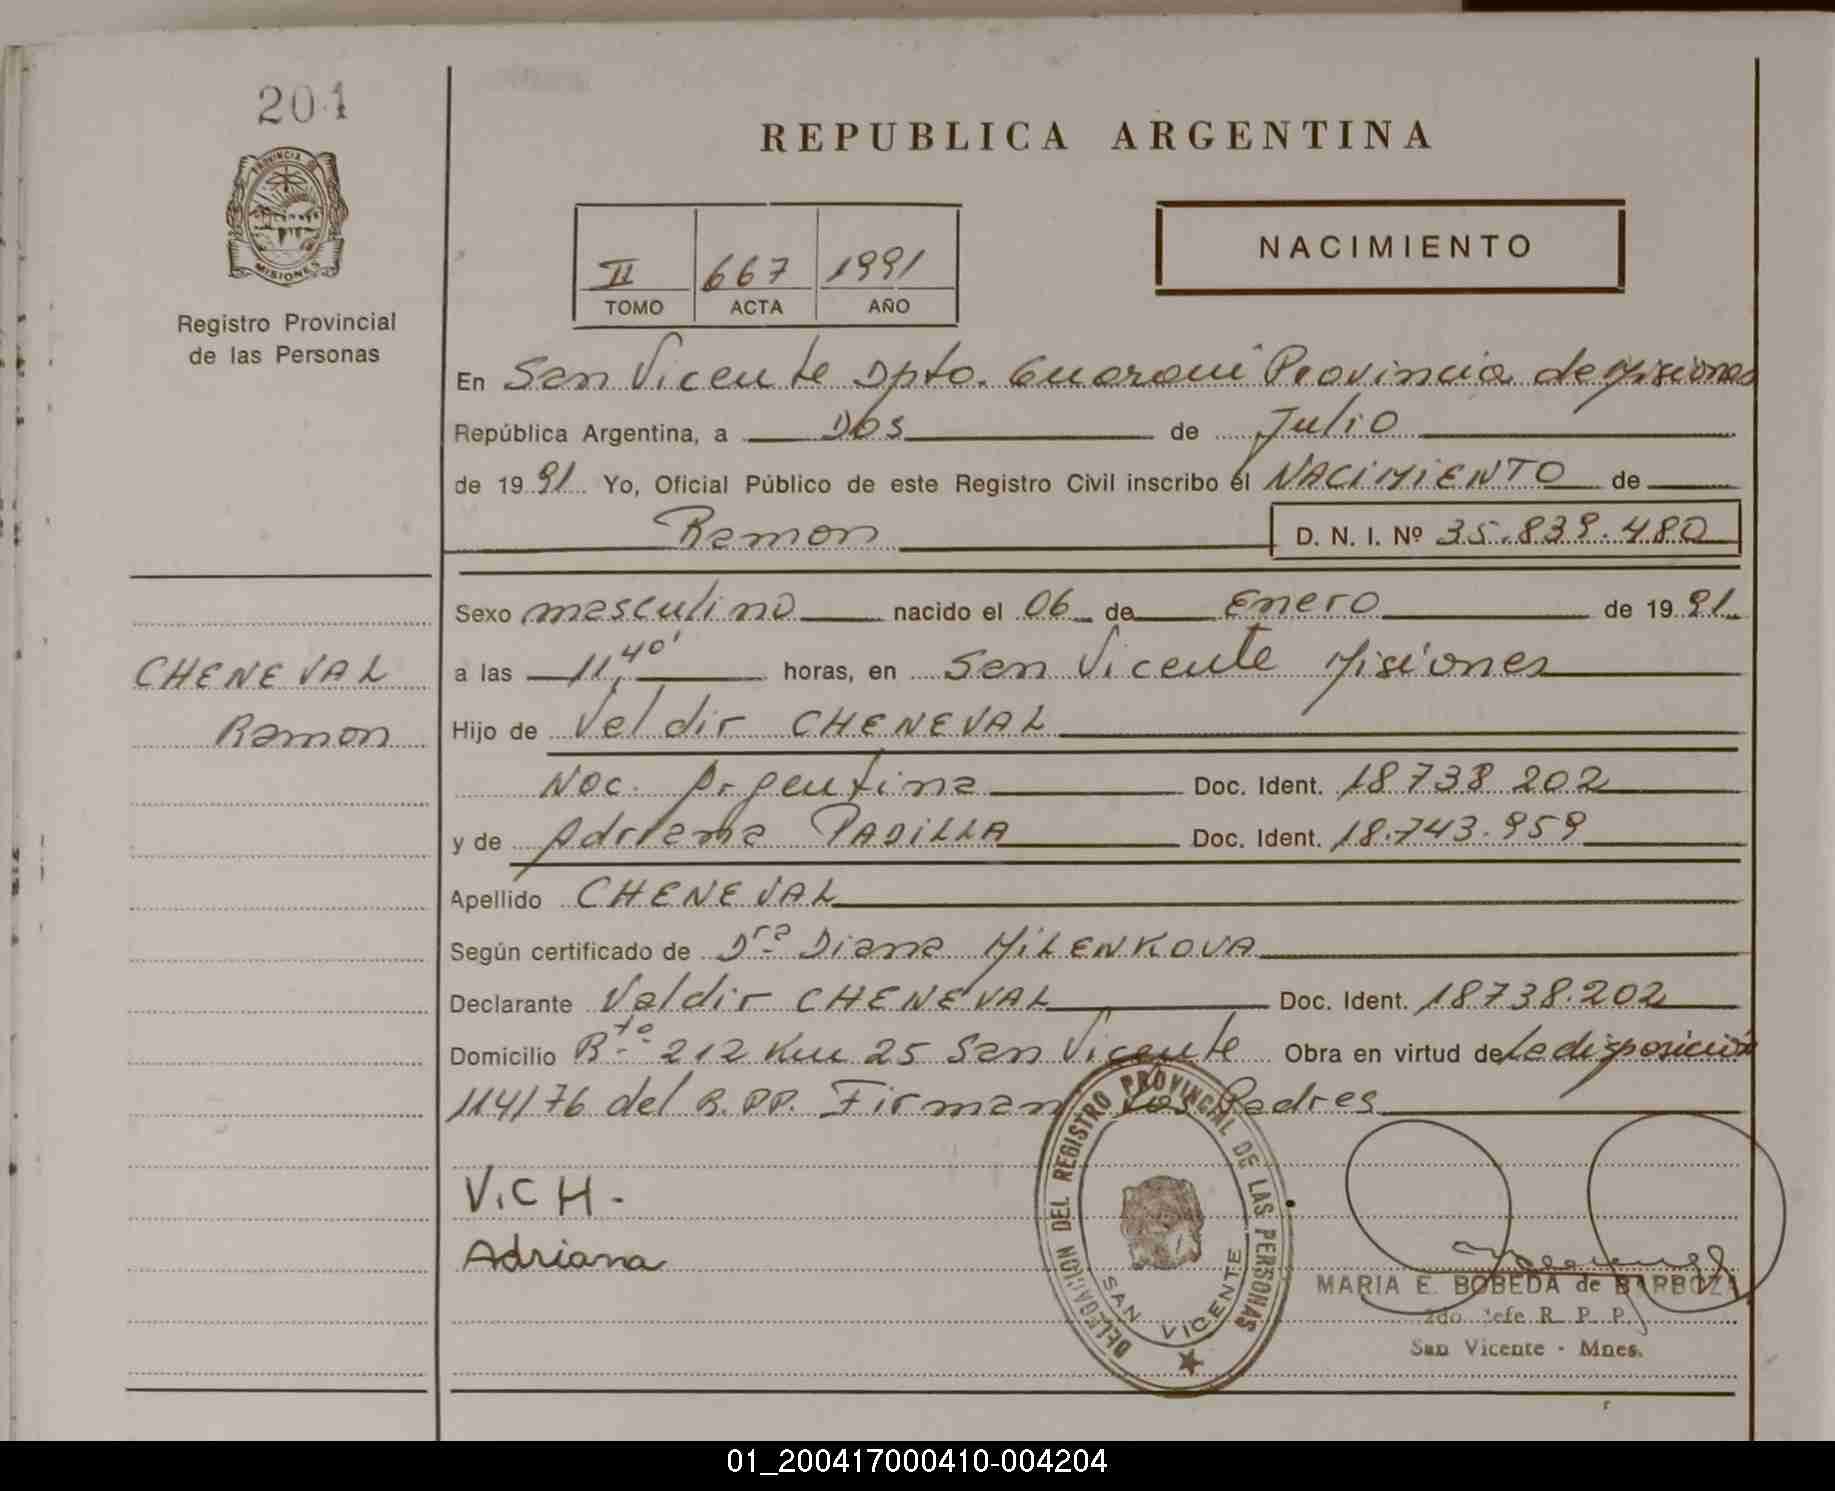 201
PROVINCIA DE
MISIONES
Registro Provincial
de las Personas
CHENEVAL
Ramon
REPUBLICA ARGENTINA
II 667 1991
TOMO ACTA AÑO
NACIMIENTO
En San Vicente Dpto. Guarani Provincia de Misiones
República Argentina, a Dos de Julio
de 1991 Yo, Oficial Público de este Registro Civil inscribo el NACIMIENTO de
Ramon D. N. I. Nº 35.839.480
Sexo masculino nacido el 06 de Enero de 1991
a las 11,40' horas, en San Vicente Misiones
Hijo de Valdir CHENEVAL
Nac. Argentina Doc. Ident. 18738202
y de Adriana PADILLA Doc. Ident. 18.743.959
Apellido CHENEVAL
Según certificado de Dra Diana MILENKOVA
Declarante Valdir CHENEVAL Doc. Ident. 18738.202
Domicilio Rta 212 Km 25 San Vicente Obra en virtud de la disposición
114/76 del R.PP. Firman los Padres
V.CH.
Adriana
DELEGACION DEL REGISTRO PROVINCIAL DE LAS PERSONAS
SAN VICENTE
MARIA E. BOBEDA de BARBOZA
2do. Jefe R. P. P.
San Vicente - Mnes.
01_200417000410-004204